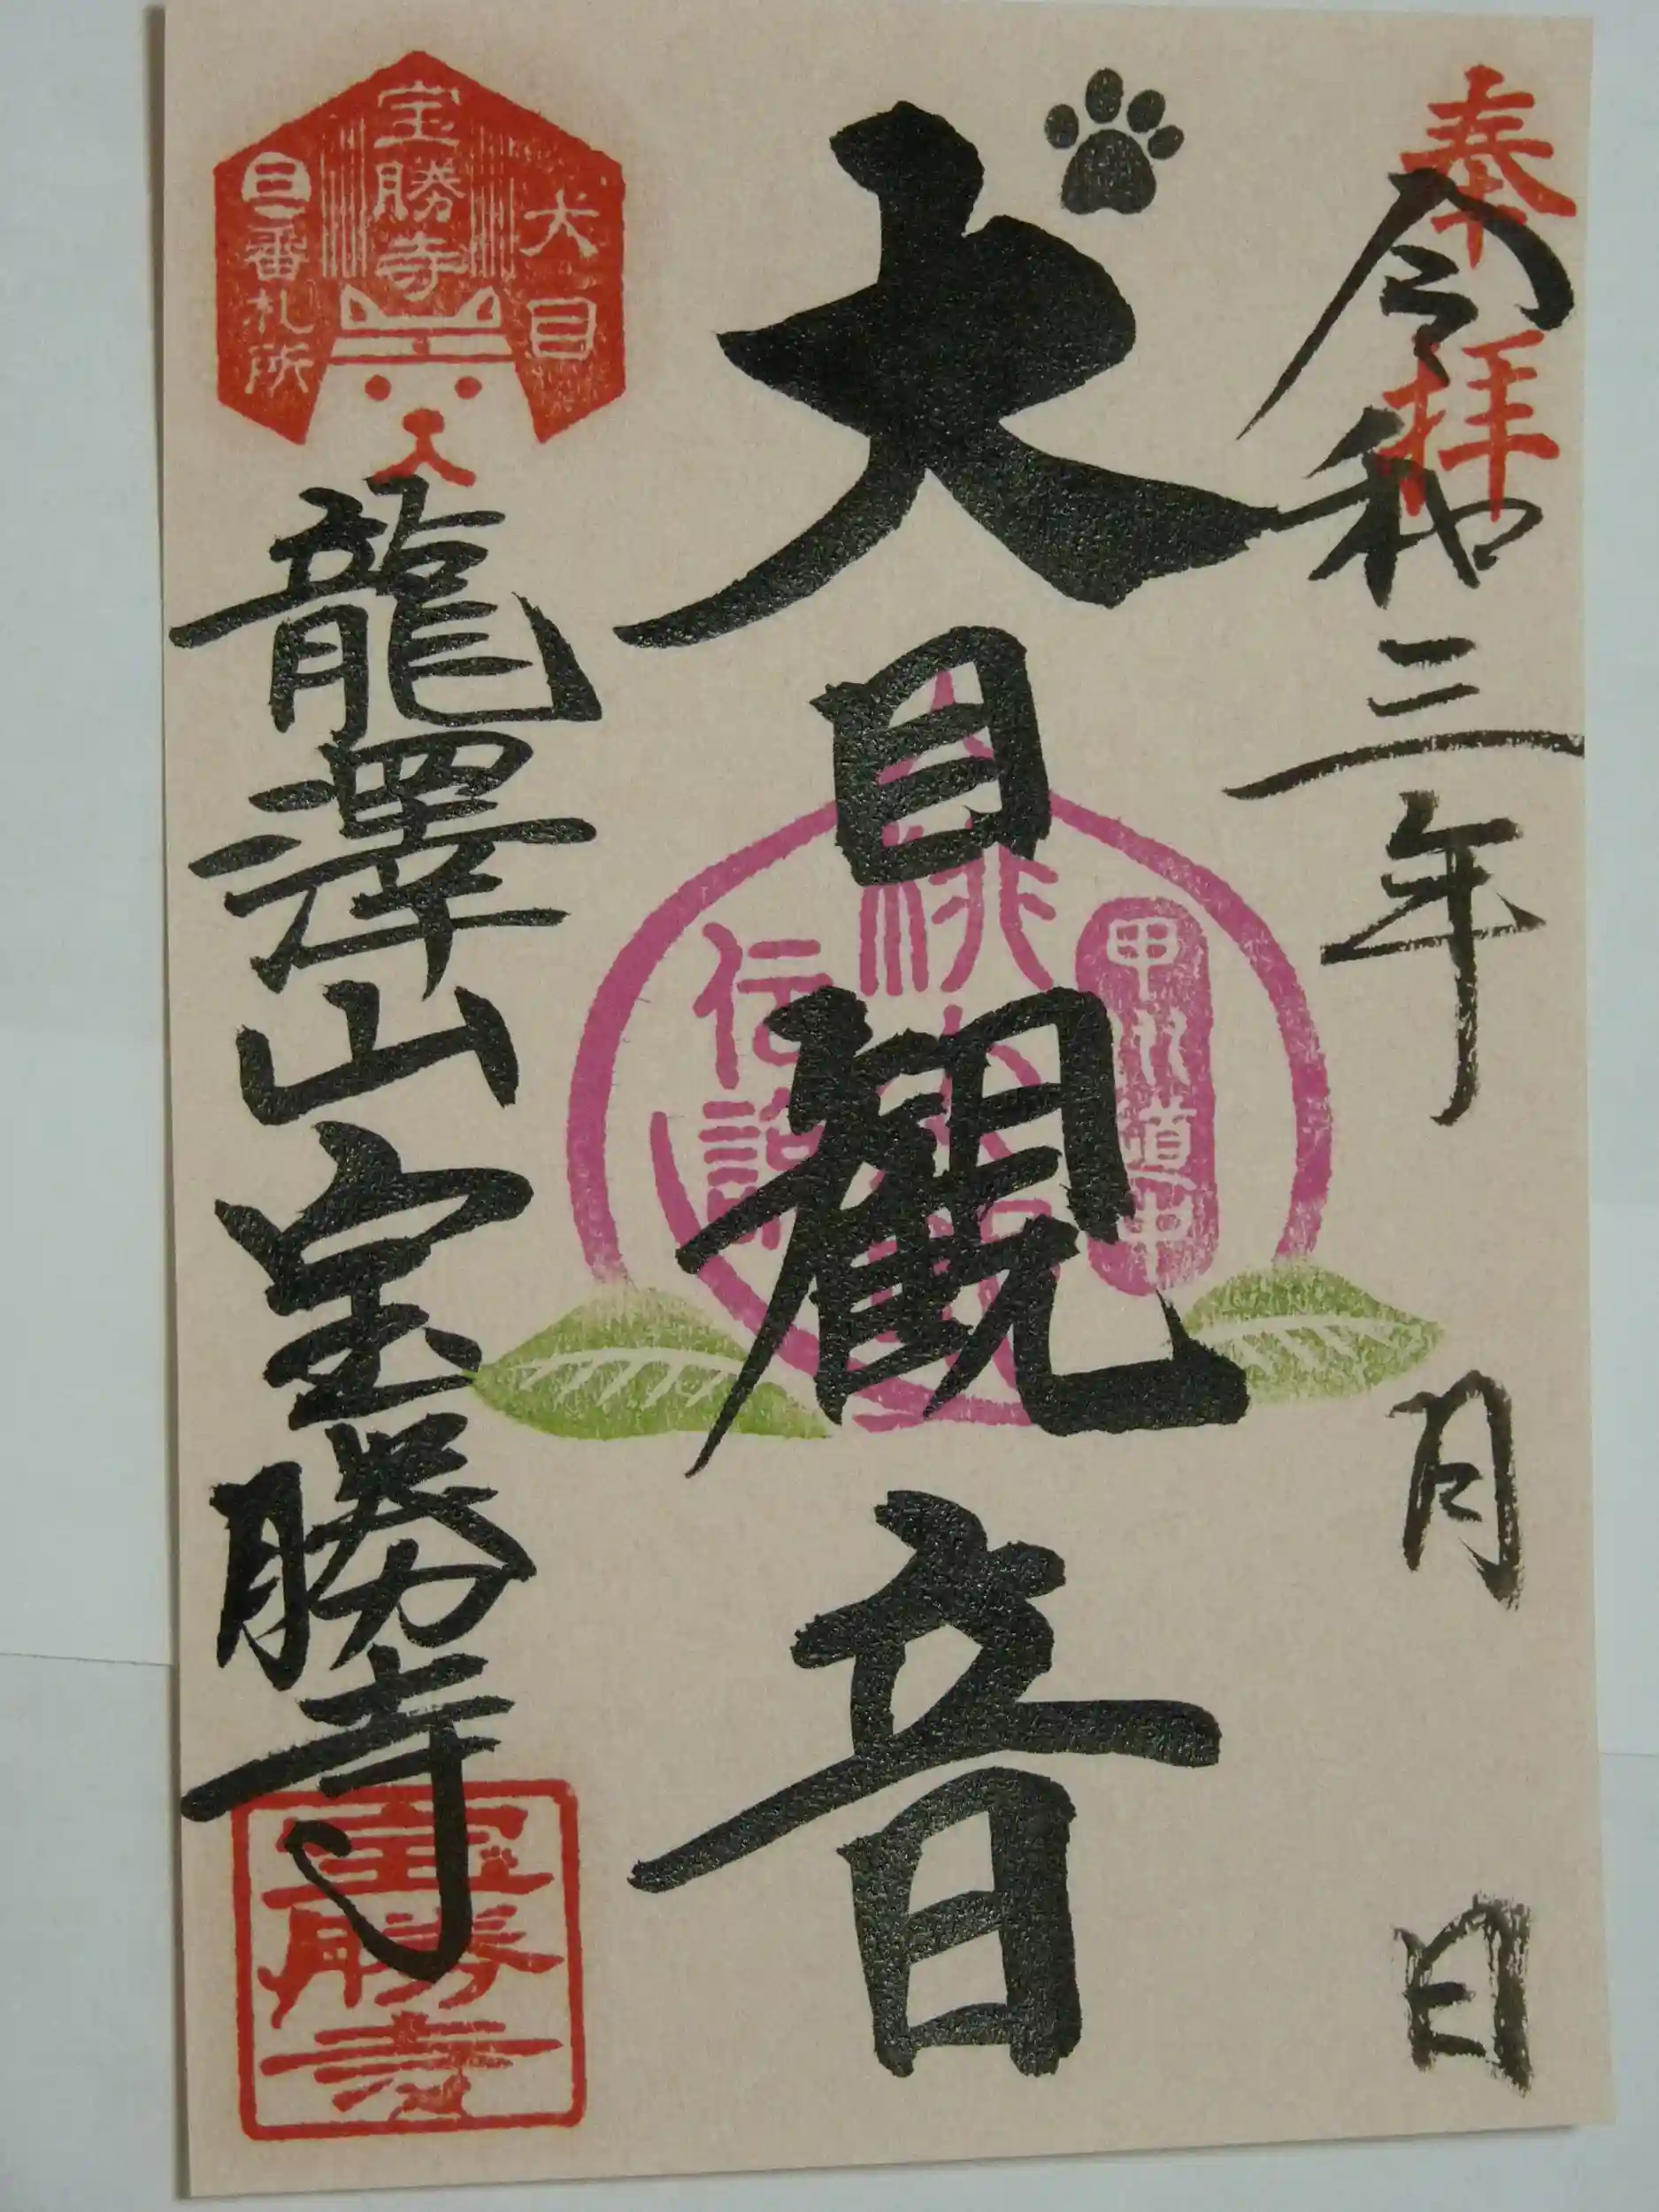 奉拝
令和三年 月 日
犬目観音
甲州道中
桃太郎
伝説
犬目
宝勝寺
三番札所
龍澤山宝勝寺
宝勝寺